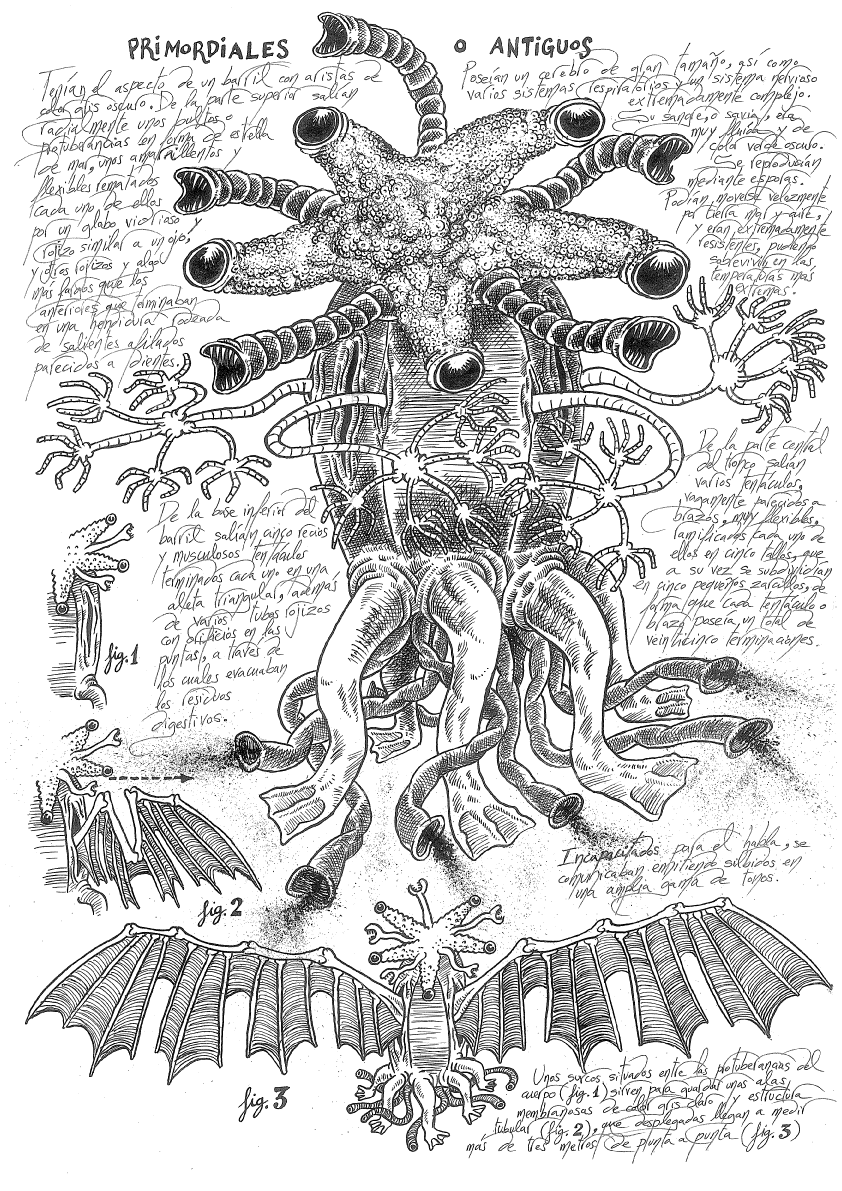 PRIMORDIALES O ANTIGUOS
Tenían el aspecto de un barril con aristas de
color gris oscuro. De la parte superior salían
radialmente unos bultos o
protuberancias en forma de estrella
de mar, unos amarillentos y
flexibles rematados
cada uno de ellos
por un globo vidrioso y
rojizo similar a un ojo,
y otros rojizos y algo
más largos que los
anteriores que terminaban
en una hendidura rodeada
de salientes afilados
parecidos a dientes.
Poseían un cerebro de gran tamaño, así como
varios sistemas respiratorios y un sistema nervioso
extremadamente complejo.
Su sangre, o savia, era
muy fluida y de
color verde oscuro.
Se reproducían
mediante esporas.
Podían moverse velozmente
por tierra mar y aire,
y eran extremadamente
resistentes, pudiendo
sobrevivir en las
temperaturas más
extremas.
De la parte central
del tronco salían
varios tentáculos,
vagamente parecidos a
brazos, muy flexibles,
ramificados cada uno de
ellos en cinco tallos, que
a su vez se subdividían
en cinco pequeños zarcillos, de
forma que cada tentáculo o
brazo poseía un total de
veinticinco terminaciones.
De la base inferior del
barril salían cinco recios
y musculosos tentáculos
terminados cada uno en una
aleta triangular, además
de varios tubos rojizos
con orificios en las
puntas, a través de
los cuales evacuaban
los residuos
digestivos.
fig. 1
fig. 2
Incapacitados para el habla, se
comunicaban emitiendo silbidos en
una amplia gama de tonos.
fig. 3
Unos surcos situados entre las protuberancias del
cuerpo (fig. 1) sirven para guardar unas alas
membranosas de color gris claro y estructura
tubular (fig. 2), que desplegadas llegan a medir
más de tres metros de punta a punta (fig. 3)